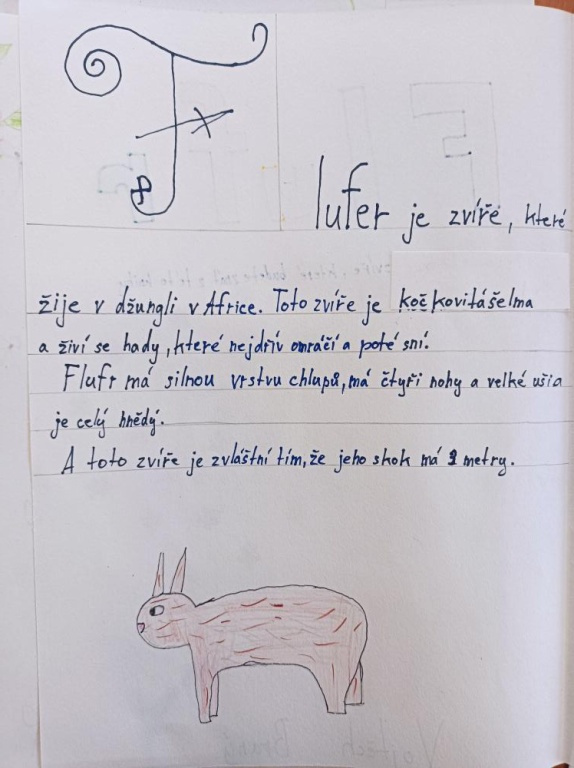 Flufer je zvíře, které
žije v džungli v Africe. Toto zvíře je kočkovitášelma
a živí se hady, které nejdřív omráčí a poté sní.
Flufr má silnou vrstvu chlupů, má čtyři nohy a velké uši a
je celý hnědý.
A toto zvíře je zvláštní tím, že jeho skok má 2 metry.